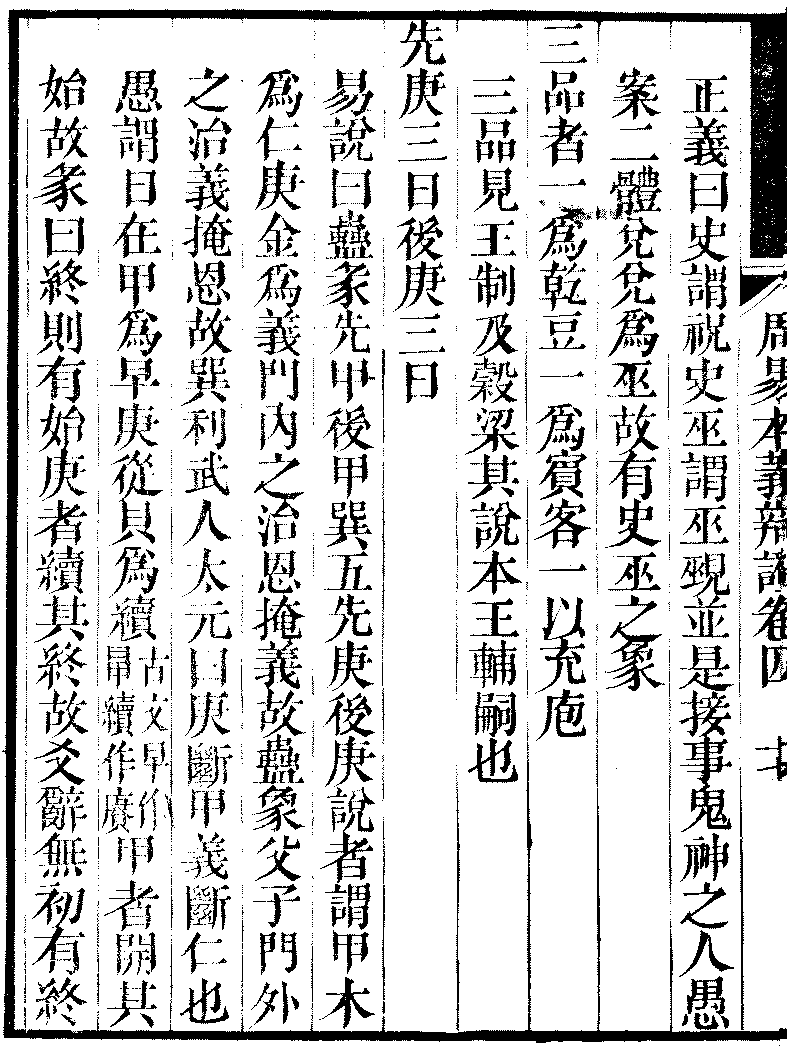 周易本義辯證卷四
正義曰史謂祝史巫謂巫覡並是接事鬼神之人愚
案二體兌兌爲巫故有史巫之象
三品者一爲乾豆一爲賓客一以充庖
三品見王制及穀梁其說本王輔嗣也
先庚三日後庚三日
易說曰蠱彖先甲後甲巽五先庚後庚說者謂甲木
爲仁庚金爲義門內之治恩掩義故蠱象父子門外
之治義掩恩故巽利武人太元曰庚斷甲義斷仁也
愚謂日在甲爲早庚從貝爲續古文早作𣅀續作賡甲者開其
始故彖曰終則有始庚者續其終故爻辭無初有終